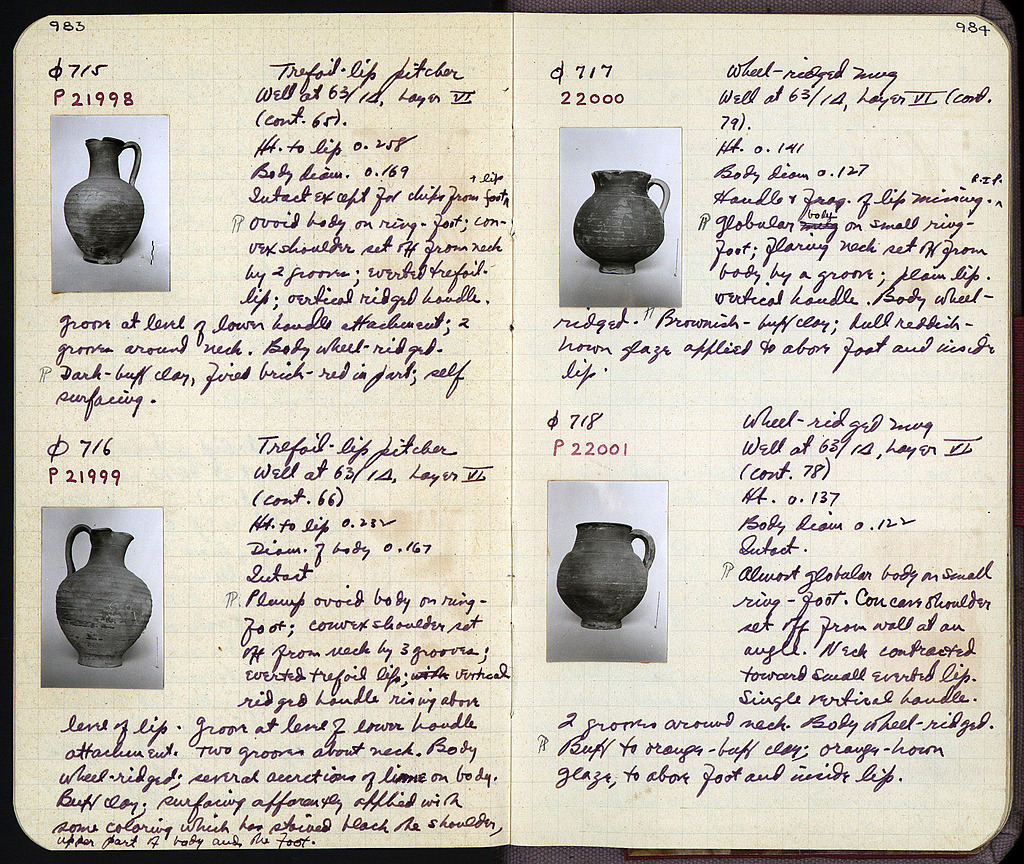 983
Φ 715
P 21998
Trefoil-lip pitcher
Well at 63/ΙΔ, Layer VI
(cont. 65).
Ht. to lip 0.258
Body diam. 0.169
+ lip
Intact except for chips from foot
¶ ovoid body on ring-foot; con-
vex shoulder set off from neck
by 2 grooves; everted trefoil-
lip; vertical ridged handle.
groove at level of lower handle attachment; 2
grooves around neck. Body wheel-ridged.
¶ Dark-buff clay, fired brick-red in part; self
surfacing.
Φ 716
P 21999
Trefoil-lip pitcher
Well at 63/ΙΔ, Layer VI
(cont. 66)
Ht. to lip 0.232
Diam. of body 0.167
Intact
¶ Plump ovoid body on ring-
foot; convex shoulder set
off from neck by 3 grooves;
everted trefoil lip; with vertical
ridged handle rising above
level of lip. Groove at level of lower handle
attachment. Two grooves about neck. Body
wheel-ridged; several accretions of lime on body.
Buff clay; surfacing apparently applied with
some coloring which has stained black the shoulder,
upper part of body and the foot.
984
Φ 717
22000
Wheel-ridged mug
Well at 63/ΙΔ, Layer VI (cont.
79).
Ht. 0.141
Body diam 0.127
R.I.P.
Handle & frag. of lip missing.
¶ Globular mug body on small ring-
foot; flaring neck set off from
body by a groove; plain lip.
vertical handle. Body wheel-
ridged. ¶ Brownish-buff clay; dull reddish-
brown glaze applied to above foot and inside
lip.
Φ 718
P 22001
Wheel-ridged mug
Well at 63/ΙΔ, Layer VI
(cont. 78)
Ht. 0.137
Body diam 0.122
Intact.
¶ Almost globular body on small
ring-foot. Concave shoulder
set off from wall at an
angle. Neck contracted
toward small everted lip.
Single vertical handle.
2 grooves around neck. Body wheel-ridged.
¶ Buff to orange-buff clay; orange-brown
glaze, to above foot and inside lip.